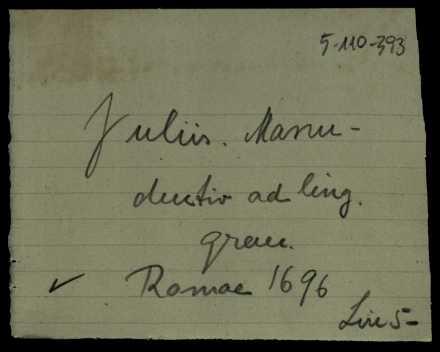 5-110-393
Juliis. Manu-
ductio ad ling.
graec.
✓ Romae 1696
Lire 5-